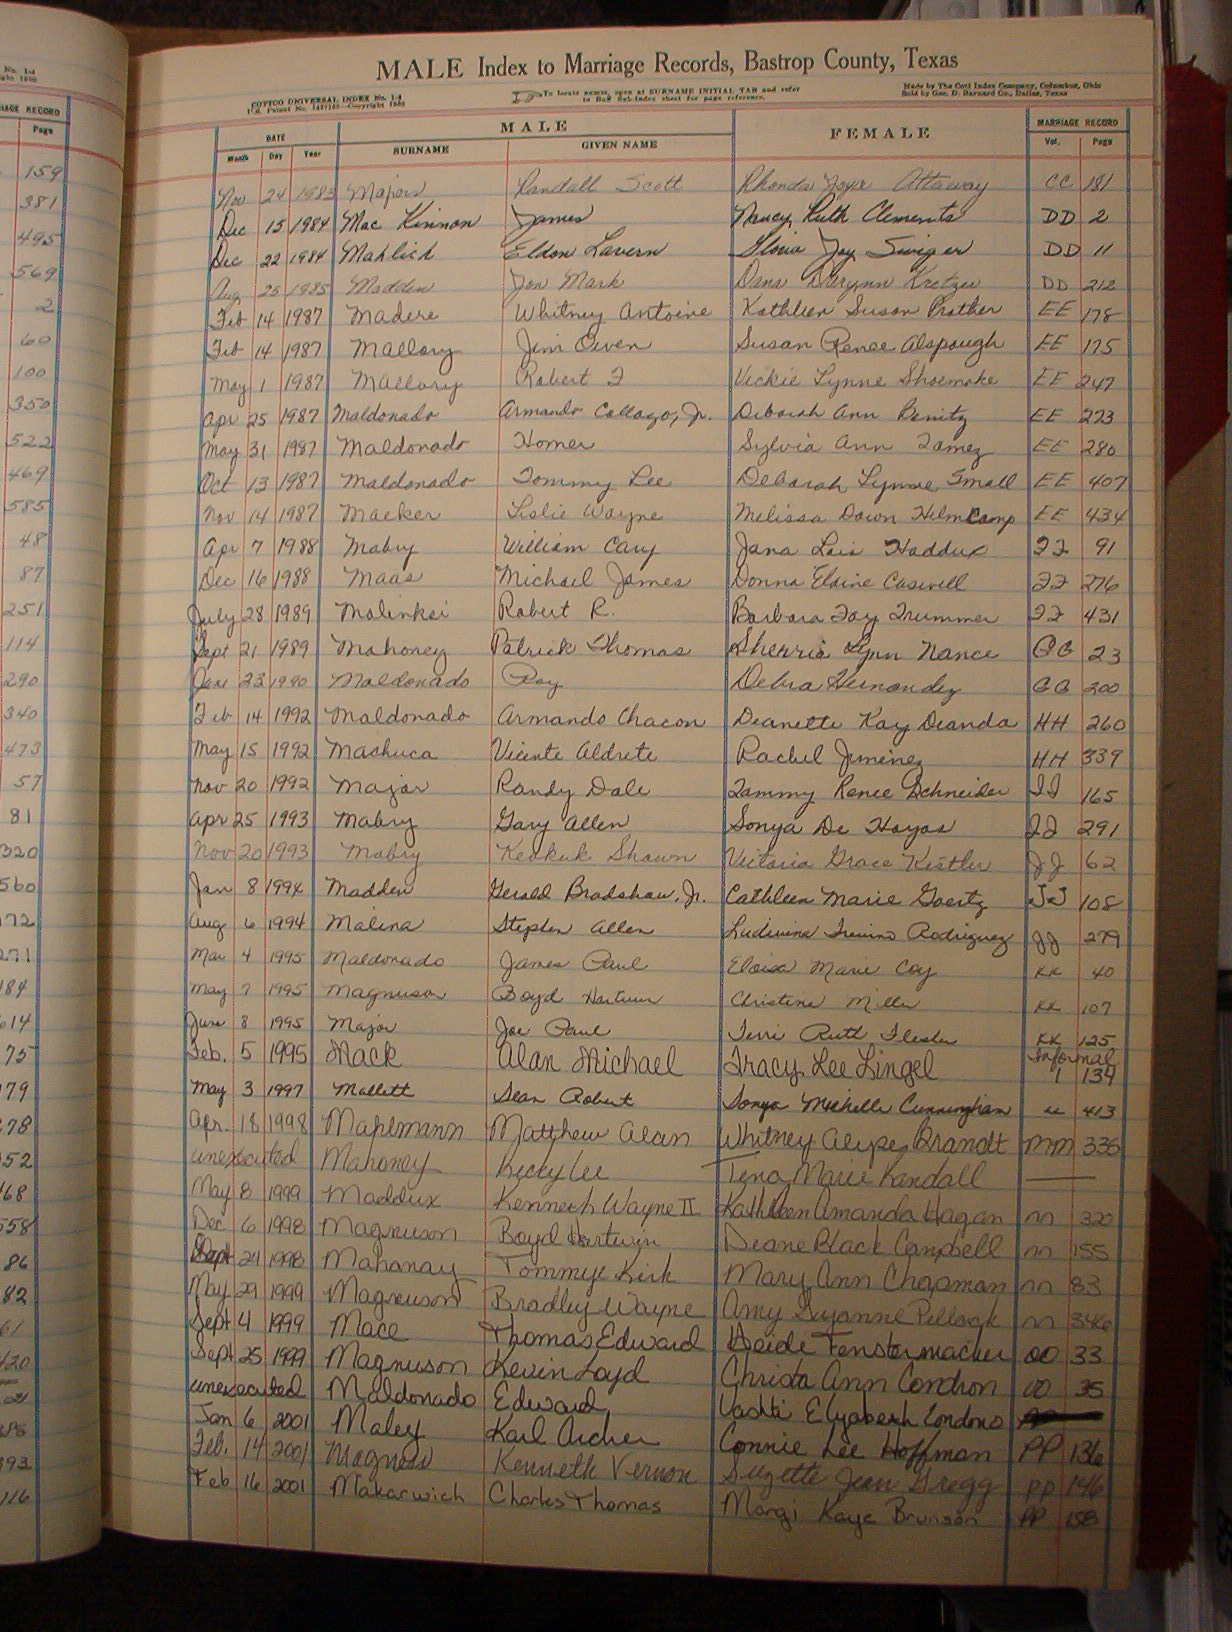 No. 1-4
MARRIAGE RECORD
Page
159
381
495
569
2
60
100
350
522
469
585
48
87
251
114
290
340
473
57
81
320
560
MALE Index to Marriage Records, Bastrop County, Texas
COTTCO UNIVERSAL INDEX No. 1-4
To locate names, open at SURNAME INITIAL TAB and refer to Buff Sub-Index sheet for page reference.
Made by The Cott Index Company, Columbus, Ohio
Sold by Geo. D. Barnard Co., Dallas, Texas
DATE MALE FEMALE MARRIAGE RECORD
Month Day Year SURNAME GIVEN NAME Vol. Page
Nov 24 1983 Majors Randall Scott Rhonda Joya Attaway CC 181
Dec 15 1984 Mac Kinnon James Nancy Ruth Clements DD 2
Dec 22 1984 Mahlich Eldon Lavern Gloria Joy Swiger DD 11
Aug 25 1985 Madden Jon Mark Dana Kretzer DD 212
Feb 14 1987 Madere Whitney Antoine Kathleen Susan Prather EE 178
Feb 14 1987 Mallory Jim Owen Susan Renee Alspaugh EE 175
May 1 1987 Mallory Robert F Vickie Lynne Shoemake EE 247
Apr 25 1987 Maldonado Armando Collazo, Jr. Deborah Ann Benitz EE 223
May 31 1987 Maldonado Homer Sylvia Ann Tamez EE 280
Oct 13 1987 Maldonado Tommy Lee Deborah Lynne Small EE 407
Nov 14 1987 Macker Leslie Wayne Melissa Dawn Helmcamp EE 434
Apr 7 1988 Mabry William Cary Jana Lois Haddux FF 91
Dec 16 1988 Maas Michael James Donna Elaine Caswell FF 276
July 28 1989 Malinkei Robert R. Barbara Fay Trummer FF 431
Sept 21 1989 Mahoney Patrick Thomas Sherrie Lynn Nance GG 23
23 1990 Maldonado Roy Debra Hernandez GG 200
Feb 14 1992 Maldonado Armando Chacon Deanette Kay Deanda HH 260
May 15 1992 Machuca Vicente Aldrete Rachel Jimenez HH 339
Nov 20 1992 Major Randy Dale Tammy Renee Schneider II 165
Apr 25 1993 Mabry Gary Allen Sonya De Hoyos II 291
Nov 20 1993 Mabry Keokuk Shawn Victoria Grace Kistler JJ 62
Jan 8 1994 Madden Gerald Bradshaw, Jr. Cathleen Marie Goertz JJ 108
Aug 6 1994 Malina Stephen Allen Ludivina Trevino Rodriguez JJ 279
Mar 4 1995 Maldonado James Paul Eloisa Marie Coy KK 40
May 7 1995 Magnuson Boyd Hartwin Christine Miller KK 107
June 8 1995 Major Joe Paul Terri Ruth KK 125
Feb. 5 1995 Mack Alan Michael Tracy Lee Lingel Informal 1 134
May 3 1997 Mallett Sean Robert Sonya Michelle Cunningham LL 413
Apr. 18 1998 Mahlmann Matthew Alan Whitney Brandt MM 336
unexecuted Mahoney Ricky Lee Tena Marie Randall
May 8 1999 Maddux Kenneth Wayne II Kathleen Amanda Hagan NN 320
Dec 6 1998 Magnuson Boyd Hartwin Deane Black Campbell NN 155
Sept 24 1998 Mahanay Tommye Kirk Mary Ann Chapman NN 83
May 29 1999 Magnuson Bradley Wayne Amy Suzanne Pollock NN 346
Sept 4 1999 Mace Thomas Edward Heide Fenstermacher OO 33
Sept 25 1999 Magnuson Kevin Loyd Christa Ann Condron OO 35
unexecuted Maldonado Edward Vashti Elyabeth Londono
Jan 6 2001 Maley Karl Archer Connie Lee Hoffman PP 136
Feb. 14 2001 Magness Kenneth Vernon Suzette Jean Gregg PP 146
Feb 16 2001 Makarwich Charles Thomas Margi Kaye Brunson PP 158